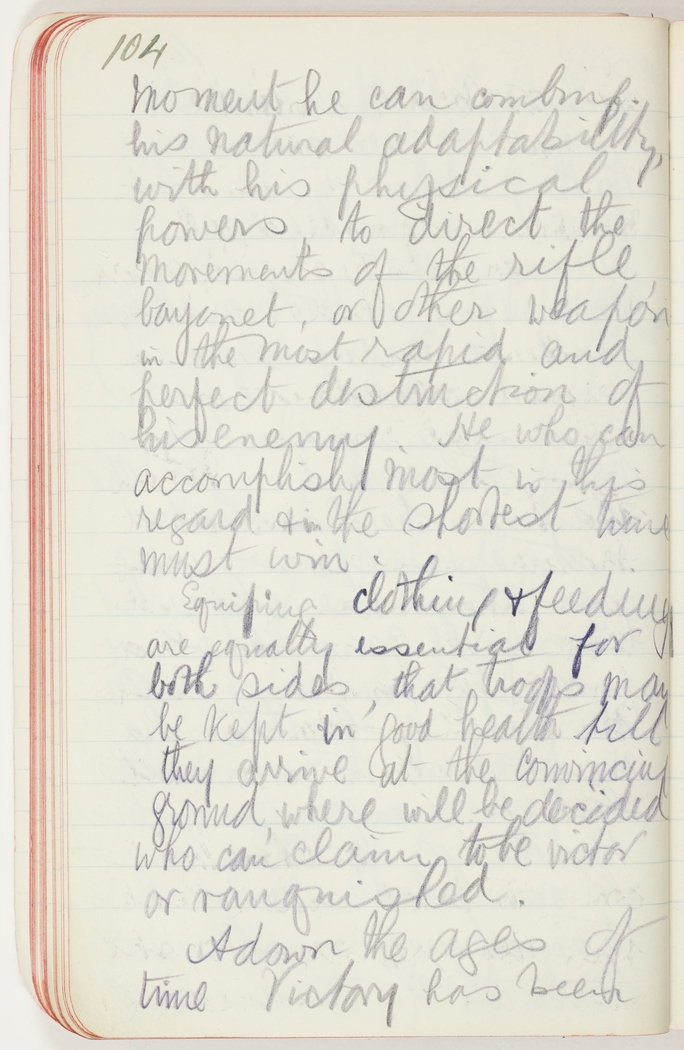 104
moment he can combine
his natural adaptability,
with his physical
powers, to direct the
movements of the rifle
bayonet, or other weapon
in the most rapid and
perfect destruction of
his enemy. He who can
accomplish most in this
regard & in the shortest time
must win.
Equiping clothing & feeding
are equally essential for
both sides, that troops may
be kept in good health till
they arrive at the convincing
ground, where will be decided
who can claim to be victor
or vanquished.
Adown the ages of
time Victory has been